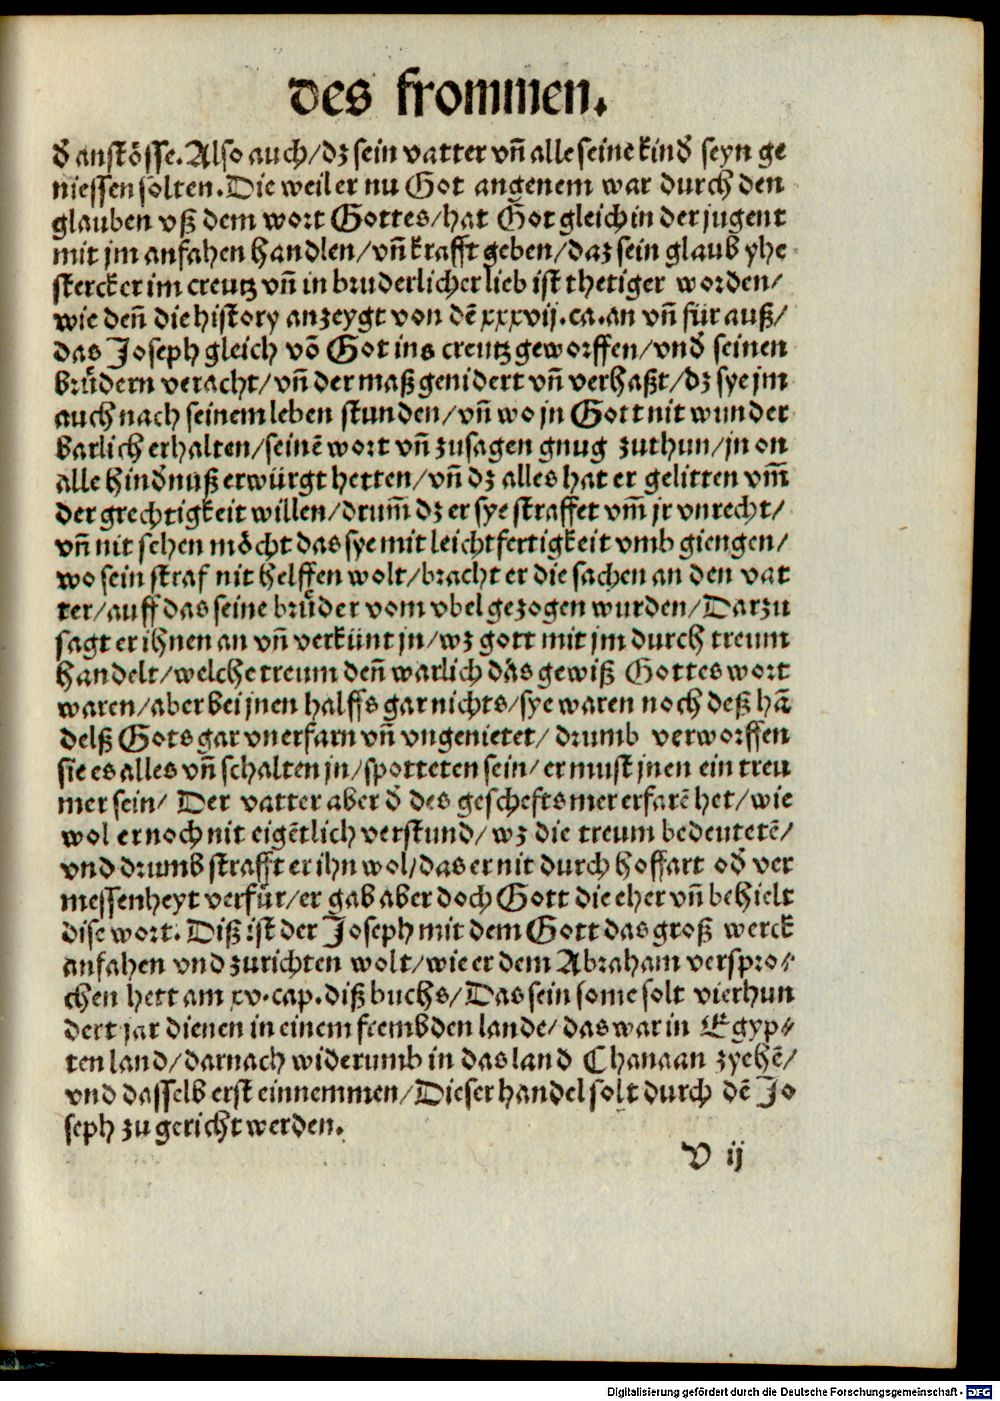 des frommen.
đ anstösse. Also auch/ dz sein vatter vñ alle seine kind seyn ge
niessen solten. Die weil er nu Got angenem war durch den
glauben vß dem wort Gottes/ hat Got gleich in der jugent
mit jm anfahen handlen/ vñ krafft geben/ daz sein glaub yhe
stercker im creutz vñ in bruderlicher lieb ist thetiger worden/
wie deñ die history anzeygt von dē xxxvij. ca. an vñ für auß/
das Joseph gleich vō Got ins creutz geworffen/ vnđ seinen
brüdern veracht/ vñ der maß genidert vñ verhaßt/ dz sye jm
auch nach seinem leben stunden/ vñ wo jn Gott nit wunder
barlich erhalten/ seinē wort vñ zusagen gnug zuthun/ jn on
alle hinđnuß erwürgt hetten/ vñ dz alles hat er gelitten vm̃
der grechtigkeit willen/ drum̃ dz er sye straffet vm̃ jr vnrecht/
vñ nit sehen möcht das sye mit leichtfertigkeit vmb giengen/
wo sein straf nit helffen wolt/ bracht er die sachen an den vat
ter/ auff das seine brüder vom vbel gezogen wurden/ Darzu
sagt er ihnen an vñ verkünt jn/ wz gott mit jm durch treum
handelt/ welche treum deñ warlich das gewiß Gottes wort
waren/ aber bei jnen halffs gar nichts/ sye waren noch deß hā
delß Gots gar vnerfarn vñ vngenietet/ drumb verworffen
sie es alles vñ schalten jn/ spotteten sein/ er must jnen ein treu
mer sein/ Der vatter aber đ des geschefts mer erfarē het/ wie
wol er noch nit eigētlich verstund/ wz die treum bedeutetē/
vnd drumb strafft er ihn wol/ das er nit durch hoffart ođ ver
messenheyt verfür/ er gab aber doch Gott die eher vñ behielt
dise wort. Diß ist der Joseph mit dem Gott das groß werck
anfahen vnd zurichten wolt/ wie er dem Abraham verspro⸗
chen hett am xv. cap. diß buchs/ Das sein some solt vierhun
dert jar dienen in einem frembden lande/ das war in Egyp⸗
ten land/ darnach widerumb in das land Chanaan zyehē/
vnd dasselb erst einnemmen/ Dieser handel solt durch dē Jo
seph zu gericht werden.
V ij
Digitalisierung gefördert durch die Deutsche Forschungsgemeinschaft - DFG